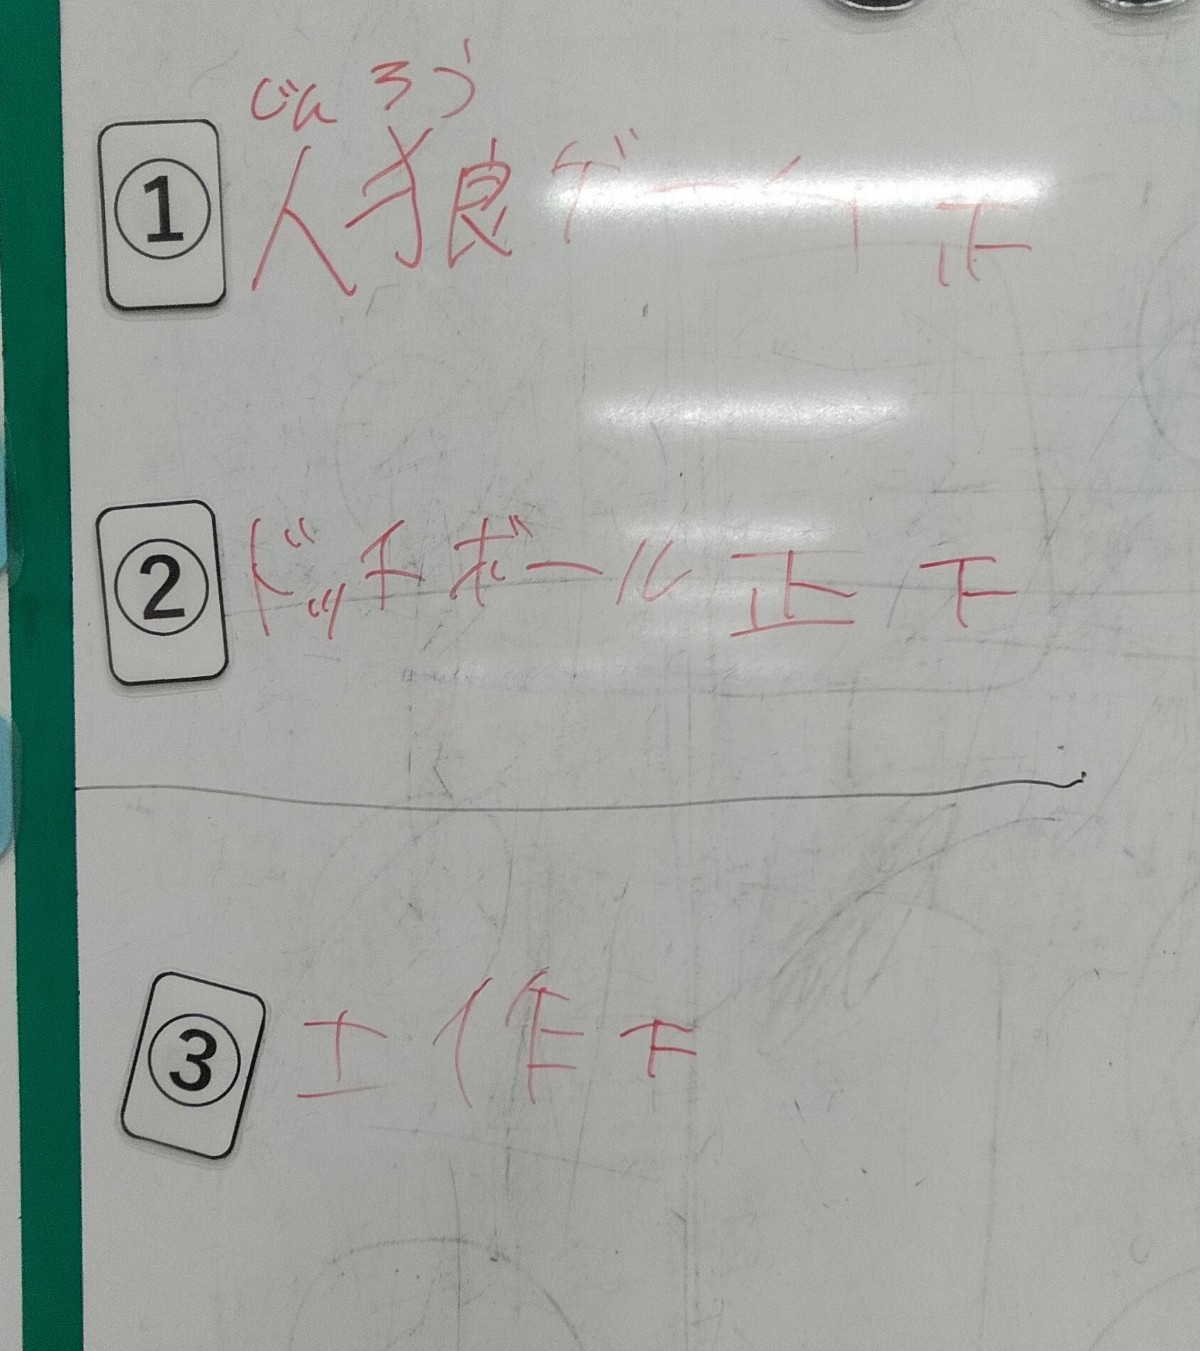 じんろう
① 人狼ゲーム 正
② ドッチボール 正 下
③ 工作 下